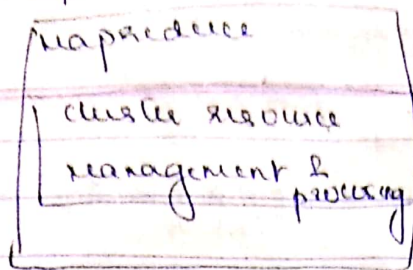 mapreduce
cluster resource
management &
processing